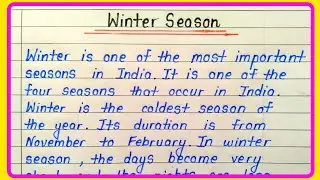 Winter Season
Winter is one of the most important
seasons in India. It is one of the
four seasons that occur in India.
Winter is the coldest season of
the year. Its duration is from
November to February. In winter
season, the days become very
short and the nights are